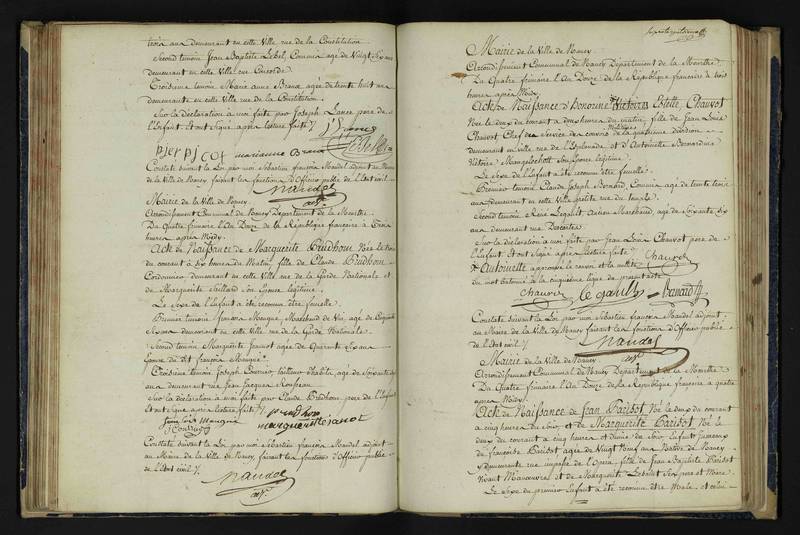 trois ans demeurant en cette Ville rue de la Constitution.
Second temoin Jean Baptiste Lebel, Commis agé de Vingt six ans
demeurant en cette Ville rue
Troisieme temoin Marie anne Braux agée de trente huit ans
demeurante en cette Ville rue de la Constitution.
Sur la déclaration a moi faite par Joseph Lance pere de
l'Enfant. Et ont signé après lecture faite ./.
marianne Braux
Constaté suivant la Loi par moi Sébastien françois Mandel adjoint au Maire
de la Ville de Nancy faisant les fonctions d'Officier public de l'Etat civil ./.
Mandel
adjt.
Mairie de la Ville de Nancy.
Arrondissement Communal de Nancy Département de la Meurthe.
Du Quatre frimaire l'An Douze de la République françoise à Trois
heures après Midy.
Acte de Naissance de Marguerite Prudhom Née le trois
du courant à dix heures du Matin, fille de Claude Prudhom
Cordonnier demeurant en cette Ville rue de la Garde Nationale et
de Marguerite Taillard son Epouse légitime.
Le Sexe de l'Enfant a été reconnu être femelle.
Premier temoin françois Mougué, Marchand de Vin, agé de Cinquante
Six ans demeurant en cette Ville rue de la Garde Nationale.
Second temoin Marguerite Jeannot agée de Quarante six ans
femme du dit françois Mougué.
Troisieme temoin Joseph Courrier, tailleur d'habits, agé de Soixante
ans demeurant rue Jean Jacques Rousseau.
Sur la déclaration à moi faite par Claude Prudhom pere de l'Enfant
Et ont signé après lecture faite ./.
prudhom
margueritte janot
Constaté suivant la Loi par moi Sébastien françois Mandel adjoint
au Maire de la Ville de Nancy, faisant les fonctions d'Officier public
de l'Etat civil ./.
Mandel
adjt.
Mairie de la Ville de Nancy.
Arrondissement Communal de Nancy Département de la Meurthe.
Du Quatre frimaire l'An Douze de la République françoise à trois
heures après Midy.
Acte de Naissance d'Honorine Victoires Estelle Chauvot
Née le deux du courant à deux heures du matin, fille de Jean Louis
Chauvot Chef des Service des convois Militaires de la quatrieme division
demeurant en cette Ville rue de l'Esplanade et d'Antoinette Bernardine
Victoire son Epouse légitime.
Le Sexe de l'Enfant a été reconnu être femelle.
Premier temoin Claude Joseph Bernard, Commis agé de trente trois
ans demeurant en cette Ville petite rue du temple.
Second temoin René Legault ancien Marchand, agé de Soixante six
ans demeurant rue Descartes.
Sur la déclaration a moi faite par Jean Louis Chauvot pere de
l'Enfant. Et ont signé après lecture faite ./. Chauvot
Antoinette approuvé le renvoi et la nullité
du mot raturé à la cinquième ligne du présent acte
Chauvot le gault Bernard
Constaté suivant la Loi par moi Sébastien françois Mandel adjoint
au Maire de la Ville de Nancy faisant les fonctions d'Officier public
de l'Etat civil ./.
Mandel
adjt.
Mairie de la Ville de Nancy
Arrondissement Communal de Nancy Département de la Meurthe
Du Quatre frimaire l'An Douze de la République françoise à quatre
heures après Midy.
Acte de Naissance de Jean Paribot Né le deux du courant
à cinq heures du Soir, et de Marguerite Paribot Née le
deux du courant à cinq heures et demie du Soir Enfants jumeaux
de françoise Paribot agée de Vingt Neuf ans Native de Nancy
y demeurante rue de l'Opera, fille de Jean Baptiste Paribot
vivant Manoeuvre et de Marguerite Lebault Ses pere et Mere.
Le Sexe du premier Enfant a été reconnu être Male et celui